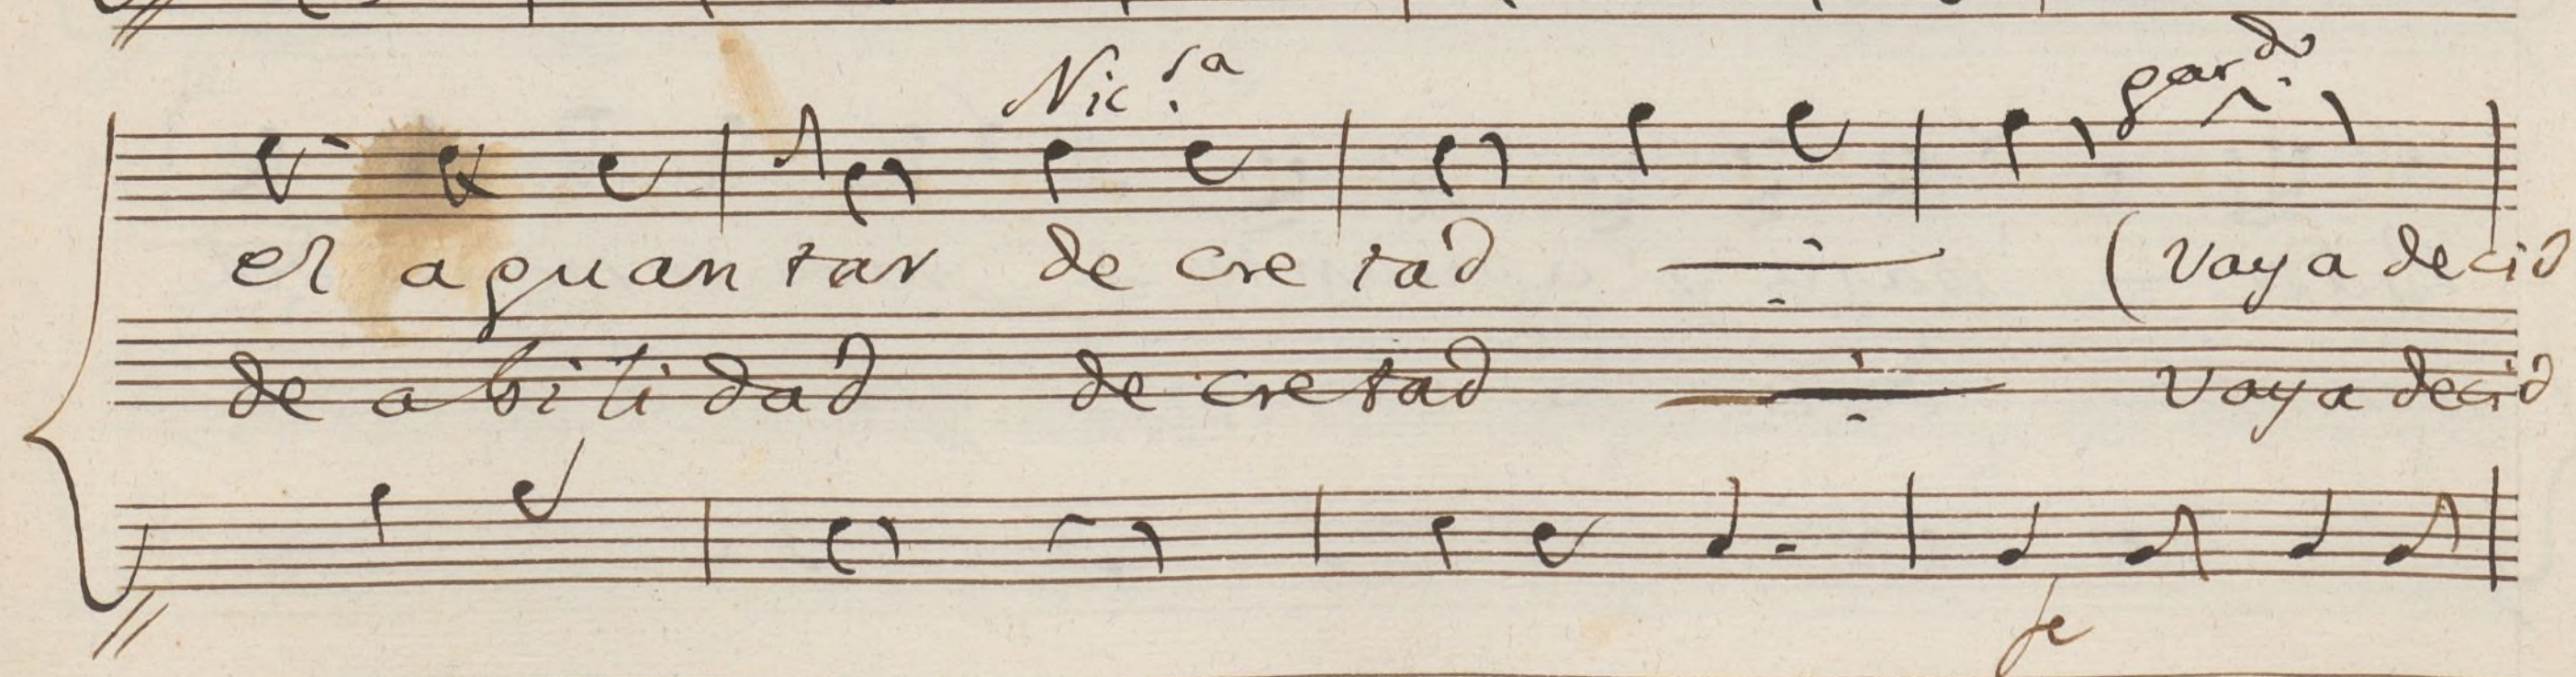 Nic.sa gard.o
el aguantar decretad (vaya decid
de abilidad decretad vaya decid
fe